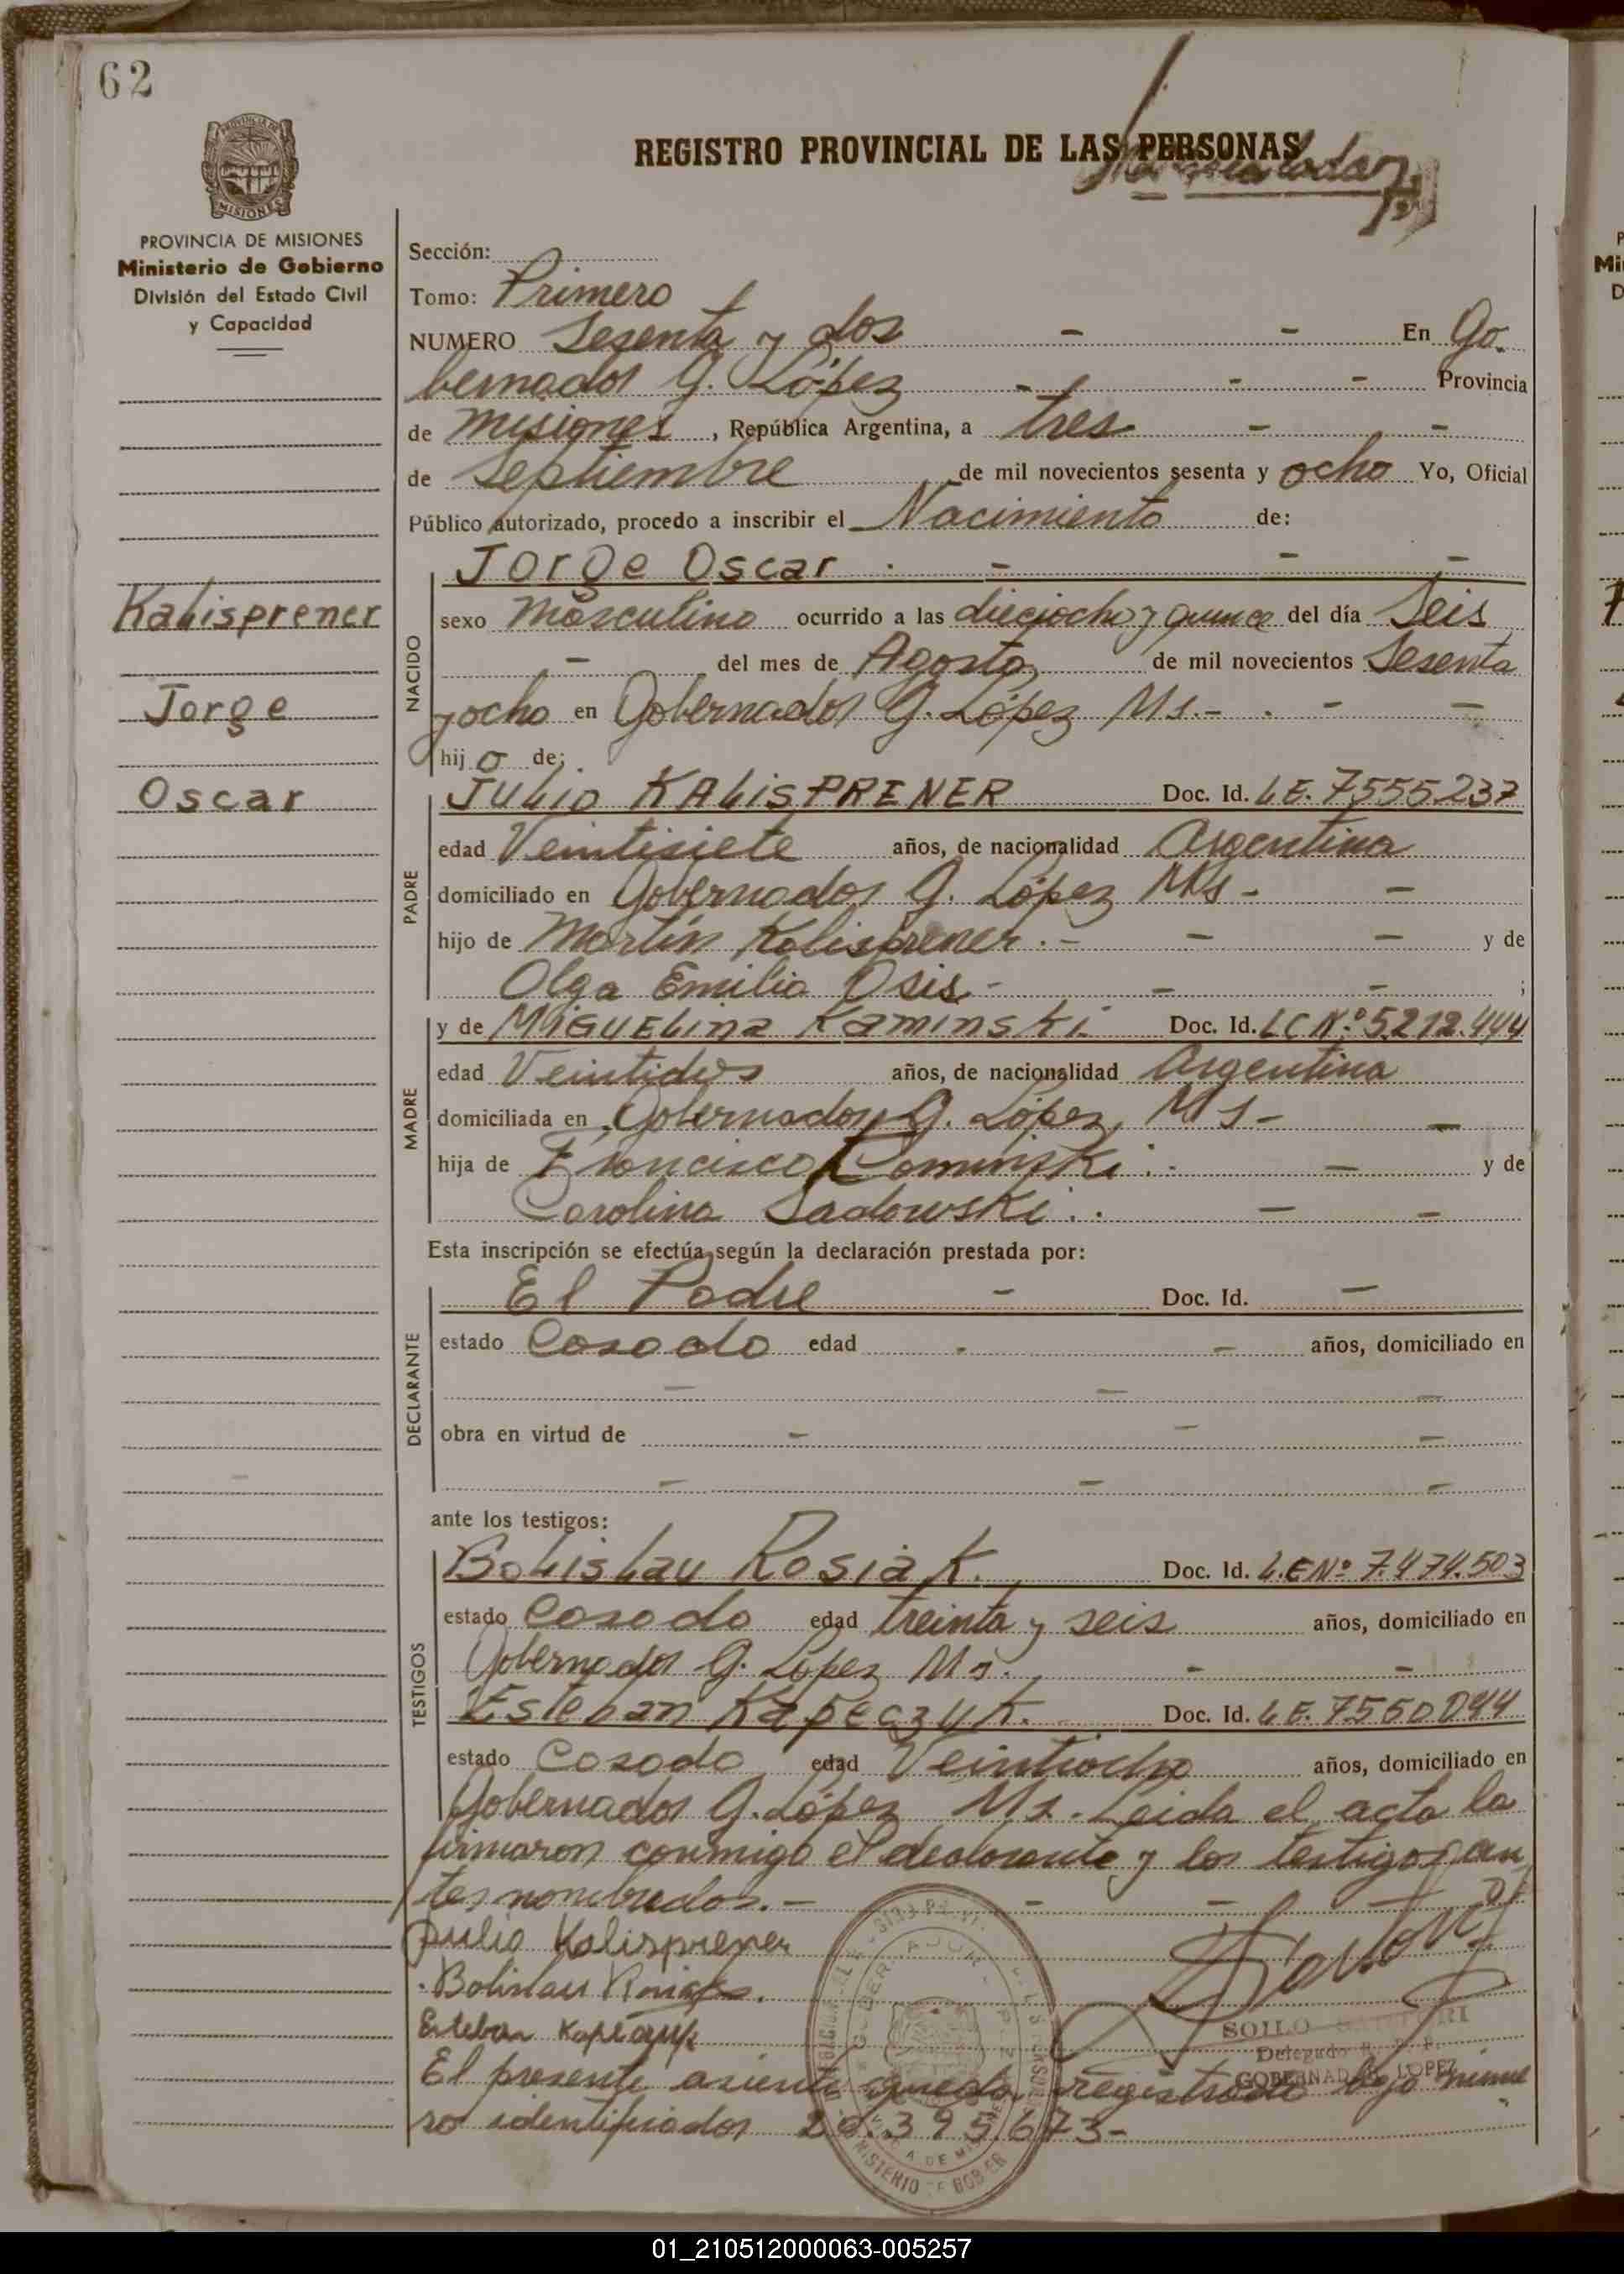 62
PROVINCIA DE MISIONES
Ministerio de Gobierno
División del Estado Civil
y Capacidad
REGISTRO PROVINCIAL DE LAS PERSONAS
Sección:
Tomo: Primero
NUMERO Sesenta y dos - - En Go-
bernador G. López - - - Provincia
de Misiones, República Argentina, a tres - -
de Septiembre de mil novecientos sesenta y ocho Yo, Oficial
Público autorizado, procedo a inscribir el Nacimiento de:
Kalisprener
Jorge
Oscar
NACIDO
Jorge Oscar - - -
sexo Masculino ocurrido a las dieciocho y quince del día Seis
- del mes de Agosto de mil novecientos Sesenta
y ocho en Gobernador G. López Ms.- - -
hijo de:
PADRE
Julio KALISPRENER Doc. Id. L.E. 7555237
edad Veintisiete años, de nacionalidad Argentina
domiciliado en Gobernador G. López Ms - -
hijo de Martín Kalisprener.- - - y de
Olga Emilia Osis.- - - ;
MADRE
y de MIGUELina Kaminski Doc. Id. LC Nº 5.212.444
edad Veintidos años, de nacionalidad Argentina
domiciliada en Gobernador G. López, Ms - -
hija de Francisco Kaminski.- - y de
Carolina Sadowski.. - -
Esta inscripción se efectúa según la declaración prestada por:
DECLARANTE
El Padre - Doc. Id. -
estado Casado edad - - años, domiciliado en
- - -
obra en virtud de - - -
- - -
ante los testigos:
TESTIGOS
Bolislau Rosiak. Doc. Id. L.E Nº 7.474.503
estado Casado edad treinta y seis años, domiciliado en
Gobernador G. López Ms. - -
Esteban Kapeczuk. Doc. Id. L.E. 7560044
estado Casado edad Veintiocho años, domiciliado en
Gobernador G. López Ms. Leida el acta la
firmaron conmigo el declarante y los testigos an
tes nombrados.- - - -
Julio Kalisprener
Bolislau Rosiak.
Esteban Kapeczuk
SOILO
Delegado R. P. P.
GOBERNADOR LOPEZ
El presente asiento queda registrado bajo núme
ro identificador 20.395.673-
01_210512000063-005257